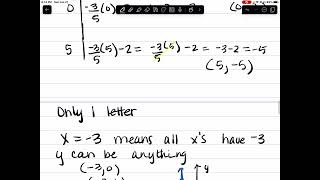 0 -3/5(0)
5 -3/5(5)-2 = -3(5)/5 -2 = -3-2=-5
(5,-5)
Only 1 letter
x = -3 means all x's have -3
y can be anything
(-3,0)
y